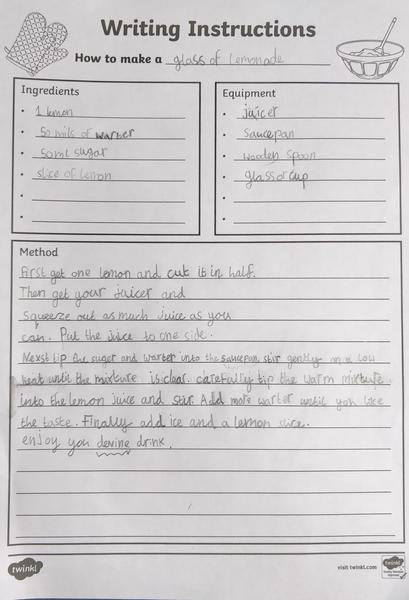 Writing Instructions
How to make a glass of lemonade
Ingredients
• 1 lemon
• 50 mils of warter
• 50ml sugar
• slice of lemon
•
•
Equipment
• juicer
• saucepan
• wooden spoon
• glass or cup
•
•
Method
First get one lemon and cut it in half.
Then get your juicer and
squeeze out as much juice as you
can. Put the juice to one side.
Nexst tip the suger and warter into the saucepan stir gently on a low
heat until the mixture is clear. carefully tip the warm mixture
into the lemon juice and stir. Add more warter until you like
the taste. Finally add ice and a lemon slice.
enjoy you devine drink.
twinkl
visit twinkl.com
twinkl